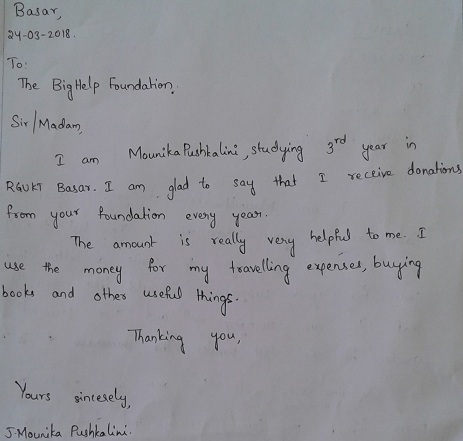 Basar,
24-03-2018.
To:
The BigHelp Foundation.
Sir/Madam,
I am Mounika Pushkalini, studying 3rd year in
RGUKT Basar. I am glad to say that I receive donations
from your foundation every year.
The amount is really very helpful to me. I
use the money for my travelling expenses, buying
books and other useful things.
Thanking you,
Yours sincerely,
J.Mounika Pushkalini.